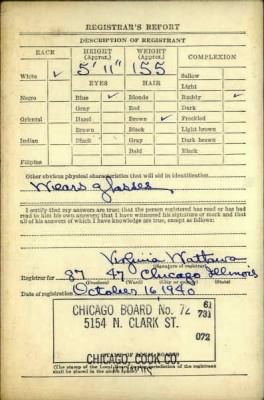 REGISTRAR'S REPORT
DESCRIPTION OF REGISTRANT
RACE HEIGHT (Approx.) WEIGHT (Approx.) COMPLEXION
White ✓ 5' 11" 155 Sallow
EYES HAIR Light
Negro Blue ✓ Blonde Ruddy ✓
Gray Red Dark
Oriental Hazel Brown ✓ Freckled
Brown Black Light brown
Indian Black Gray Dark brown
Bald Black
Filipino
Other obvious physical characteristics that will aid in identification
Wears glasses
I certify that my answers are true; that the person registered has read or has had
read to him his own answers; that I have witnessed his signature or mark and that
all of his answers of which I have knowledge are true, except as follows:
Virginia Wattawa
(Signature of registrar)
Registrar for 87 47 Chicago Illinois
(Precinct) (Ward) (City or County) (State)
Date of registration October 16, 1940
CHICAGO BOARD No. 72 61
5154 N. CLARK ST. 731
072
CHICAGO, COOK CO.
ILLINOIS
(The stamp of the Local Board having jurisdiction of the registrant
shall be placed in the above space)